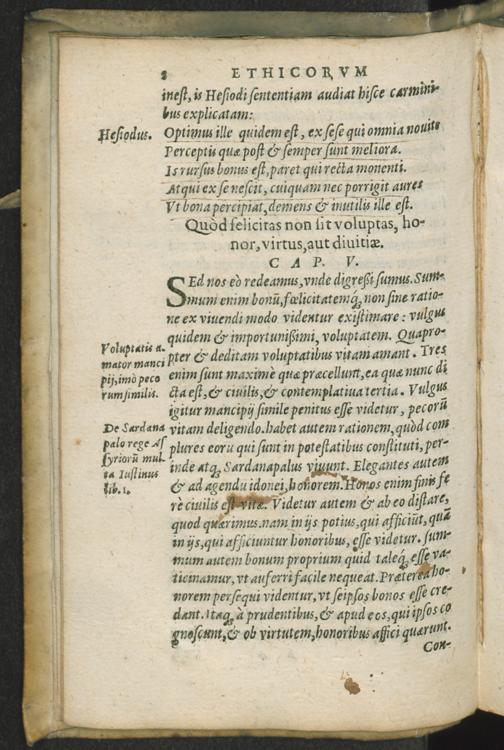 8 ETHICORVM
inest, is Hesiodi sententiam audiat hisce carmini-
bus explicatam:
Hesiodus.
Optimus ille quidem est, ex sese qui omnia nouit
Perceptis quæ post & semper sunt meliora.
Is rursus bonus est, paret qui recta monenti.
At qui ex se nescit, cuiquam nec porrigit aures
Vt bona percipiat, demens & inutilis ille est.
Quòd felicitas non sit voluptas, ho-
nor, virtus, aut diuitiæ.
CAP. V.
SEd nos eò redeamus, vnde digreßi sumus. Sum-
mum enim bonũ, fœlicitatemq́; non sine ratio-
ne ex viuendi modo videntur existimare: vulgus
quidem & importunißimi, voluptatem. Quapro-
Voluptatis a-
mator manci
pij, imò peco
rum similis.
pter & deditam voluptatibus vitam amant. Tres
enim sunt maximè quæ præcellunt, ea quæ nunc di
cta est, & ciuilis, & contemplatiua tertia. Vulgus
igitur mancipij simile penitus esse videtur, pecorũ
De Sardana
palo rege As
syriorũ mul-
ta Iustinus
lib. 1.
vitam deligendo. habet autem rationem, quòd com
plures eorũ qui sunt in potestatibus constituti, per-
inde atq; Sardanapalus viuunt. Elegantes autem
& ad agendũ idonei, honorem. Honos enim finis fe
rè ciuilis est vitæ. Videtur autem & ab eo distare,
quod quærimus. nam in ijs potius, qui afficiũt, quã
in ijs, qui afficiuntur honoribus, esse videtur. sum-
mum autem bonum proprium quid taleq́; esse va-
ticinamur, vt auferri facile nequeat. Præterea ho-
norem persequi videntur, vt seipsos bonos esse cre-
dant. Itaq; à prudentibus, & apud eos, qui ipsos co
gnoscunt, & ob virtutem, honoribus affici quærunt.
Con-